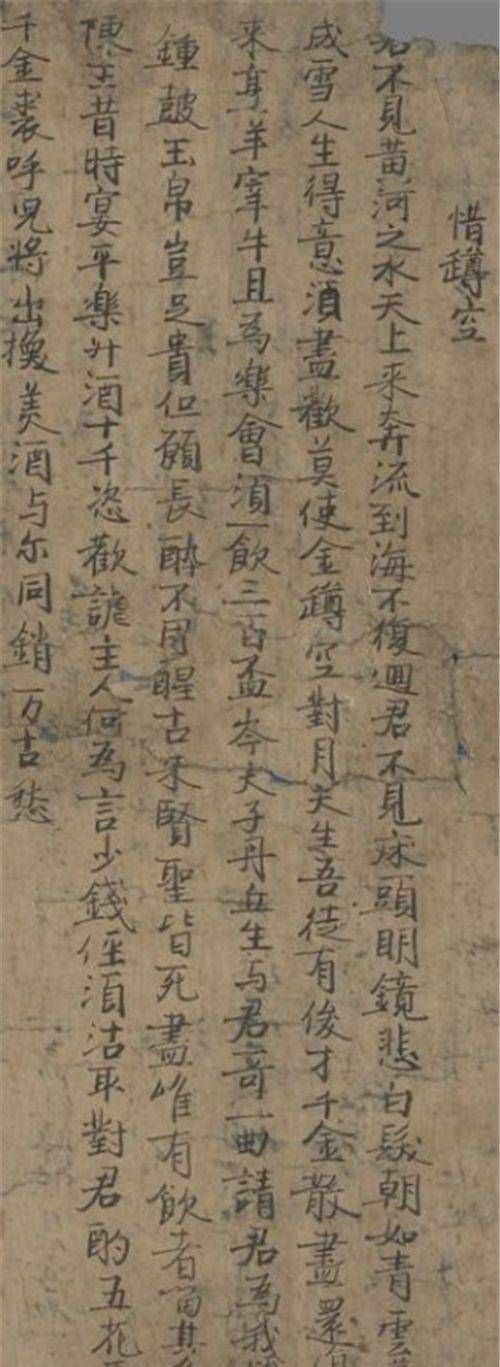 惜罇空
君不見黃河之水天上來奔流到海不復迴君不見床頭明鏡悲白髮朝如青雲
成雪人生得意須盡歡莫使金罇空對月天生吾徒有俊才千金散盡還
來烹羊宰牛且為樂會須一飲三百盃岑夫子丹丘生与君哥一曲請君為我
鍾皷玉帛豈足貴但願長醉不用醒古來賢聖皆死盡唯有飲者留其
陳王昔時宴平樂斗酒十千恣歡謔主人何為言少錢徑須沽取對君酌五花
千金裘呼兒將出換美酒与尔同銷万古愁